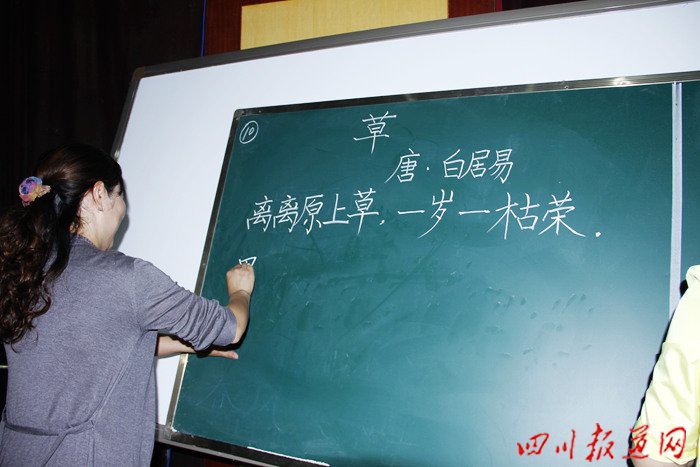 ⑩
草
唐·白居易
离离原上草,一岁一枯荣.
四川报道网